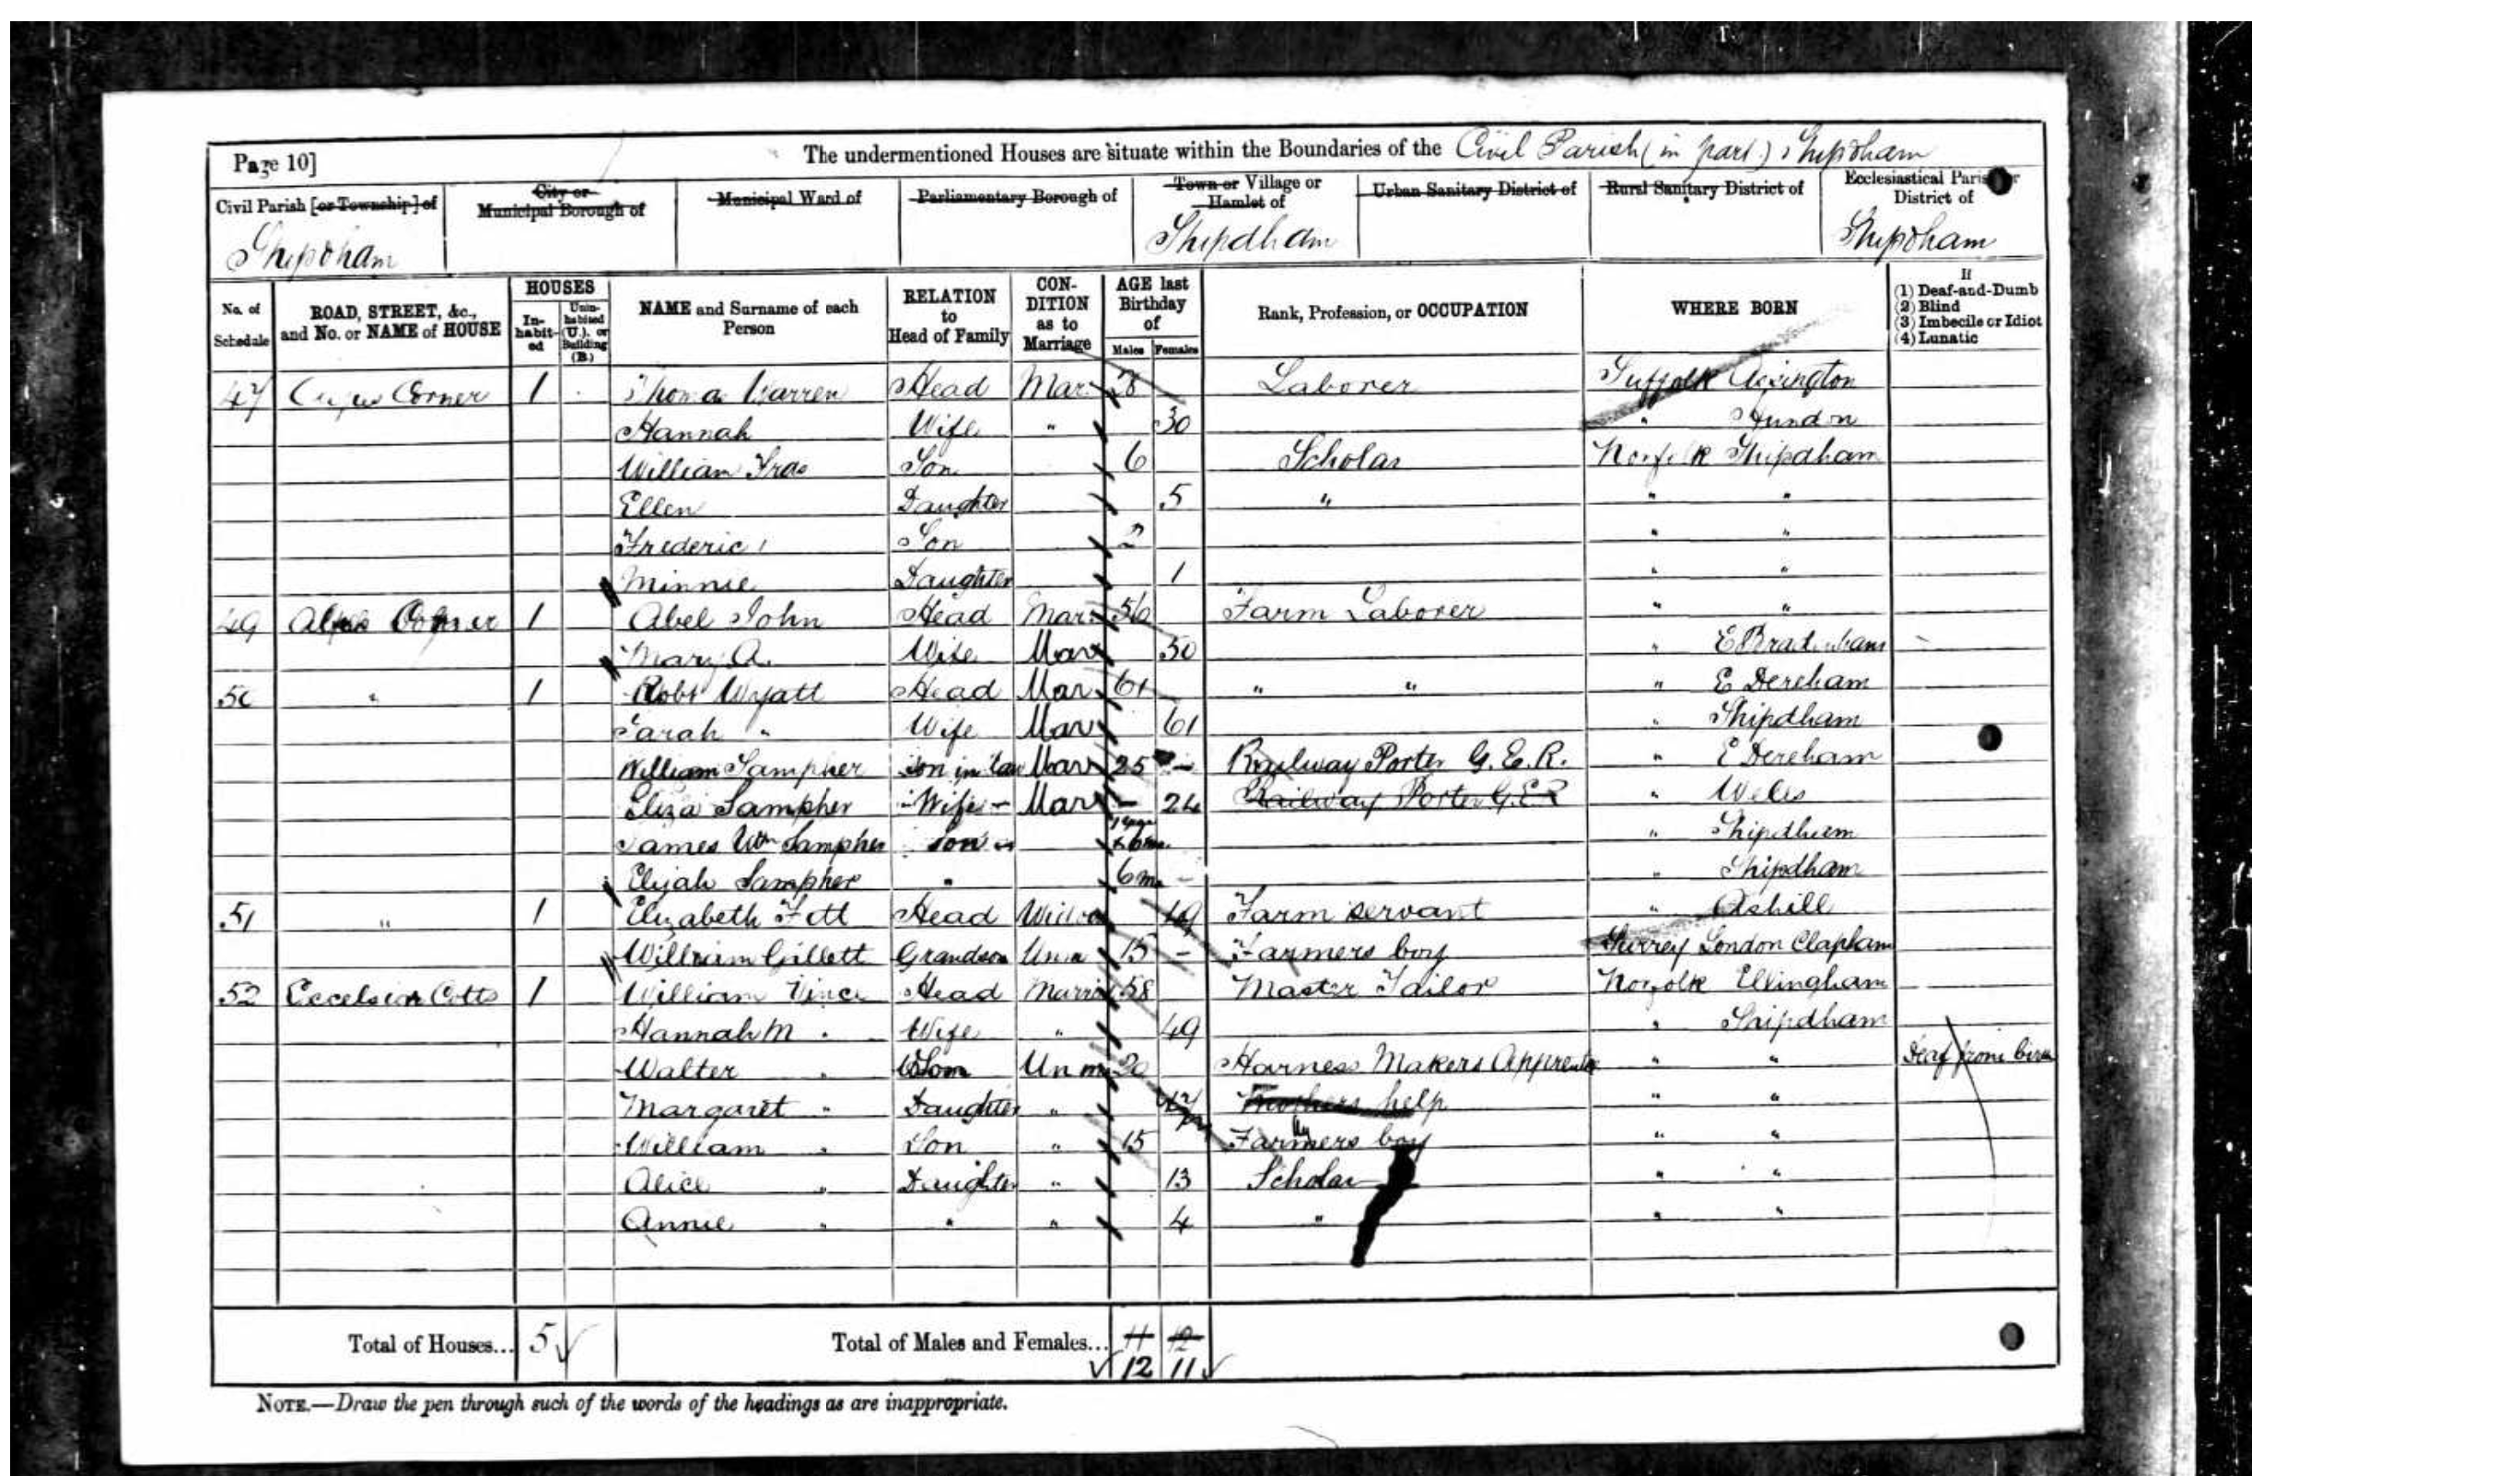 Page 10] The undermentioned Houses are situate within the Boundaries of the Civil Parish (in part) Shipdham
Civil Parish [or Township] of City or Municipal Borough of Municipal Ward of Parliamentary Borough of Town or Village or Hamlet of Urban Sanitary District of Rural Sanitary District of Ecclesiastical Parish or District of
Shipdham Shipdham Shipdham
No. of Schedule ROAD, STREET, &c., and No. or NAME of HOUSE HOUSES In-habit-ed Unin-habited (U.), or Building (B.) NAME and Surname of each Person RELATION to Head of Family CON-DITION as to Marriage AGE last Birthday of Males Females Rank, Profession, or OCCUPATION WHERE BORN If (1) Deaf-and-Dumb (2) Blind (3) Imbecile or Idiot (4) Lunatic
47 Corner 1 Thomas Warren Head Mar 28 Laborer Suffolk
Hannah Wife " 30 " Hundon
William Son 6 Scholar Norfolk Shipdham
Ellen Daughter 5 " " "
Frederic Son 2 " "
Minnie Daughter 1 " "
49 Corner 1 Abel John Head Mar 56 Farm Laborer " "
Mary A. Wife Mar 50 " E Bradenham
50 " 1 Robt Wyatt Head Mar 61 " " " E Dereham
Sarah " Wife Mar 61 " Shipdham
William Sampher Son in law Mar 25 - Railway Porter G.E.R. " E Dereham
Eliza Sampher - Wife - Mar - 24 Railway Porter G.E.R " Wells
James Wm Sampher son " Shipdham
Elijah Sampher " 6m - " Shipdham
51 " 1 Elizabeth Head Widow Farm servant " Ashill
William Gillett Grandson Unm 15 - Farmers boy Surrey London Clapham
52 Excelsior Cotts 1 William Vince Head Marri 58 Master Tailor Norfolk Ellingham
Hannah M " Wife " 49 " Shipdham
Walter " Son Unm 20 Harness Makers Apprentice " " Deaf from birth
Margaret " Daughter " 17 Mothers help " "
William " Son " 15 Farmers boy " "
Alice " Daughter " 13 Scholar " "
Annie " " " 4 " " "
Total of Houses... 5 Total of Males and Females... 11 12
12 11
NOTE.—Draw the pen through such of the words of the headings as are inappropriate.